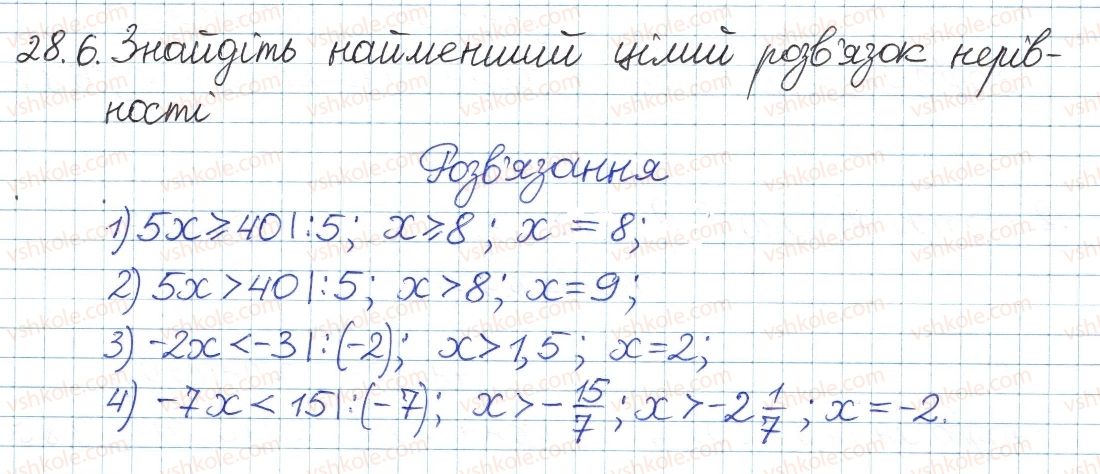 28.6. Знайдіть найменший цілий розв'язок нерів-
ності
Розв'язання
1) 5x ⩾ 40 |:5; x ⩾ 8; x = 8;
2) 5x > 40 |:5; x > 8; x = 9;
3) -2x < -3 |:(-2); x > 1,5; x = 2;
4) -7x < 15 |:(-7); x > -15/7; x > -2 1/7; x = -2.